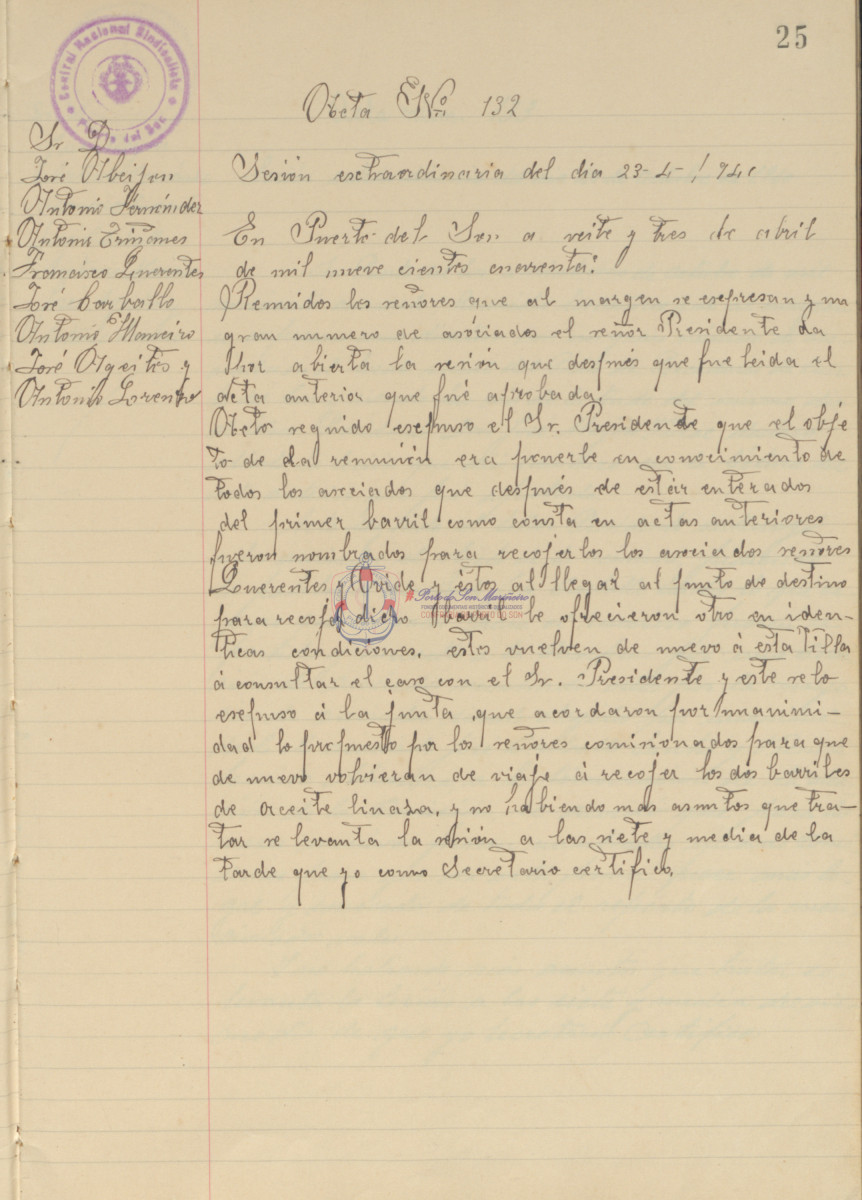 25
Central Nacional Sindicalista
Puerto del Son
Acta Nº 132
Sr D.
José Abeijon
Antonio Fernández
Antonio Triñanes
Francisco Querentes
José Carballo
Antonio Mameiro
José Ageites y
Antonio Lorenzo
Sesión esctraordinaria del dia 23-4-1940
En Puerto del Son a veite y tres de abril
de mil nueve cientos cuarenta:
Reunidos los señores que al margen se esepresan y un
gran numero de asóciados el señor Presidente da
Por abierta la sesión que después que fue leida el
acta anterior que fué aprobada.
Acto seguido esepuso el Sr. Presidente que el obje
to de la reunión era ponerle en conocimiento de
todos los asociados que después de estár enterados
del primer barril como consta en actas anteriores
fueron nombrados para recojerlos los asociados señores
Querentes y Ovide y éstos al llegar al punto de destino
para recojer dicho barril le ofrecieron otro en iden-
ticas condiciones, estos vuelven de nuevo á esta Villa
á consultar el caso con el Sr. Presidente y este se lo
esepuso á la junta, que acordaron por unanimi-
dad lo propuesto por los señores comisionados para que
de nuevo volvieran de viaje á recojer los dos barriles
de aceite linaza, y no habiendo mas asuntos que tra-
tar se levanta la sesión a las siete y media de la
tarde que yo como Secretario certifico.
Porto do Son Mariñeiro